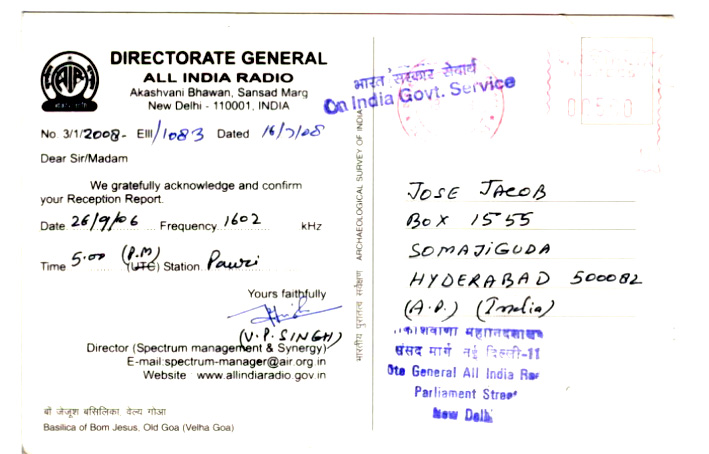 DIRECTORATE GENERAL
ALL INDIA RADIO
Akashvani Bhawan, Sansad Marg
New Delhi - 110001, INDIA
No. 3/1/2008- EIII/1083 Dated 16/7/08
Dear Sir/Madam
We gratefully acknowledge and confirm
your Reception Report.
Date 26/9/06 Frequency 1602 kHz
Time 5.00 (P.M) (UTC) Station. Pauri
Yours faithfully
(V.P. SINGH)
Director (Spectrum management & Synergy)
E-mail:spectrum-manager@air.org.in
Website : www.allindiaradio.gov.in
बॉ जेजूश बसिलिका, वेल्य गोआ
Basilica of Bom Jesus, Old Goa (Velha Goa)
भारतीय पुरातत्व सर्वेक्षण ARCHAEOLOGICAL SURVEY OF INDIA
भारत सरकार सेवार्थ
On India Govt. Service
JOSE JACOB
BOX 1555
SOMAJIGUDA
HYDERABAD 500082
(A.P.) (India)
संसद मार्ग नई दिल्ली-11
Dte General All India
Parliament Street
New Delhi